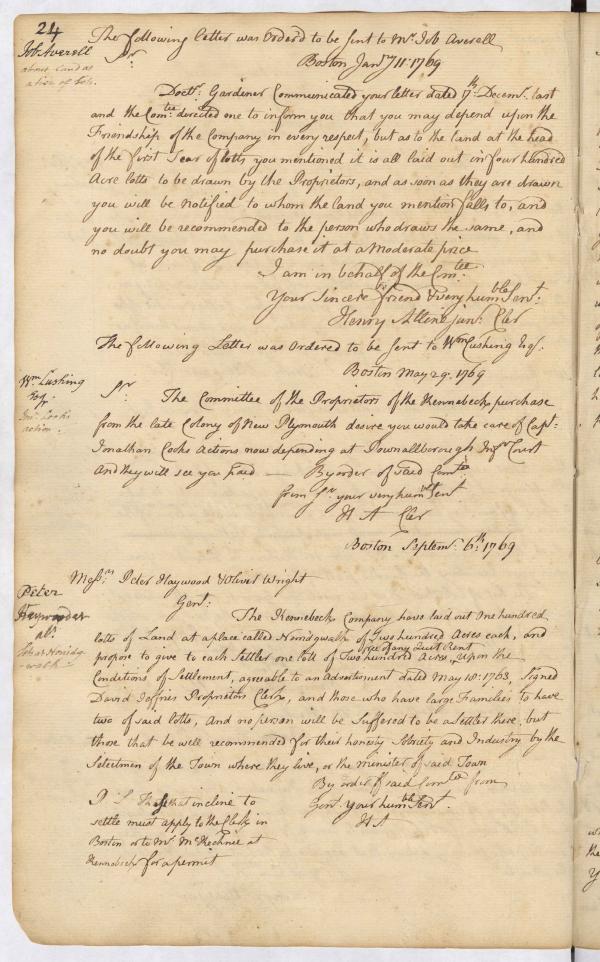 24
The following letter was Orderd to be sent to Mr. Job Averell
Job Averell
about Land at
Sr
Boston Jany 11: 1769
Doctr. Gardiner Communicated your letter dated 17th Decemr. last
and the Comtee. directed one to inform you that you may depend upon the
Friendship of the Company in every respect, but as to the land at the head
of the first Tear of lotts you mentioned it is all laid out in four hundred
Acre lotts to be drawn by the Proprietors, and as soon as they are drawn
you will be notified to whom the land you mention falls to, and
you will be recommended to the person who draws the same, and
no doubt you may purchase it at a moderate price
I am in behalf of the Comtee.
Your Sincere friend & very humble Servt.
Henry Alline junr. Cler
The following Letter was Ordered to be sent to Wm Cushing Esqr.
Boston May 29. 1769
Wm Cushing
Esqr
Jna. Cocks
action.
Sr. The Committee of the Proprietors of the Kennebeck purchase
from the late Colony of New Plymouth desire you would take care of Capt:
Jonathan Cocks Actions now depending at Pownallborough Infr Court
and they will see you paid — By order of said Comtee
from Sr. your very humble Servt
H A Cler
Boston Septemr. 6th: 1769
Messrs Peter Haywood & Oliver Wright
Peter
Haywood &
als.
Gent:
The Kennebeck Company have laid out One hundred
lotts of Land at a place called Norridgwalk of Two hundred Acres each, and
free of any Quit Rent
propose to give to each Settler one lott of Two hundred Acres, upon the
Conditions of Settlement, agreable to an Advertisment dated May 18: 1763, Signed
David Jeffries Proprietors Clerk, and those who have large Families to have
two of said lotts, And no person will be suffered to be a settler there, but
those that be well recommended for their honesty Sobriety and Industry by the
Selectmen of the Town where they live, or the minister of said Town
By order of said Comtee from
Gent. your humble Servt.
H A
P S Those that incline to
settle must apply to the Clerk in
Boston or to Mr. McKechnie at
Kennebeck for a permit